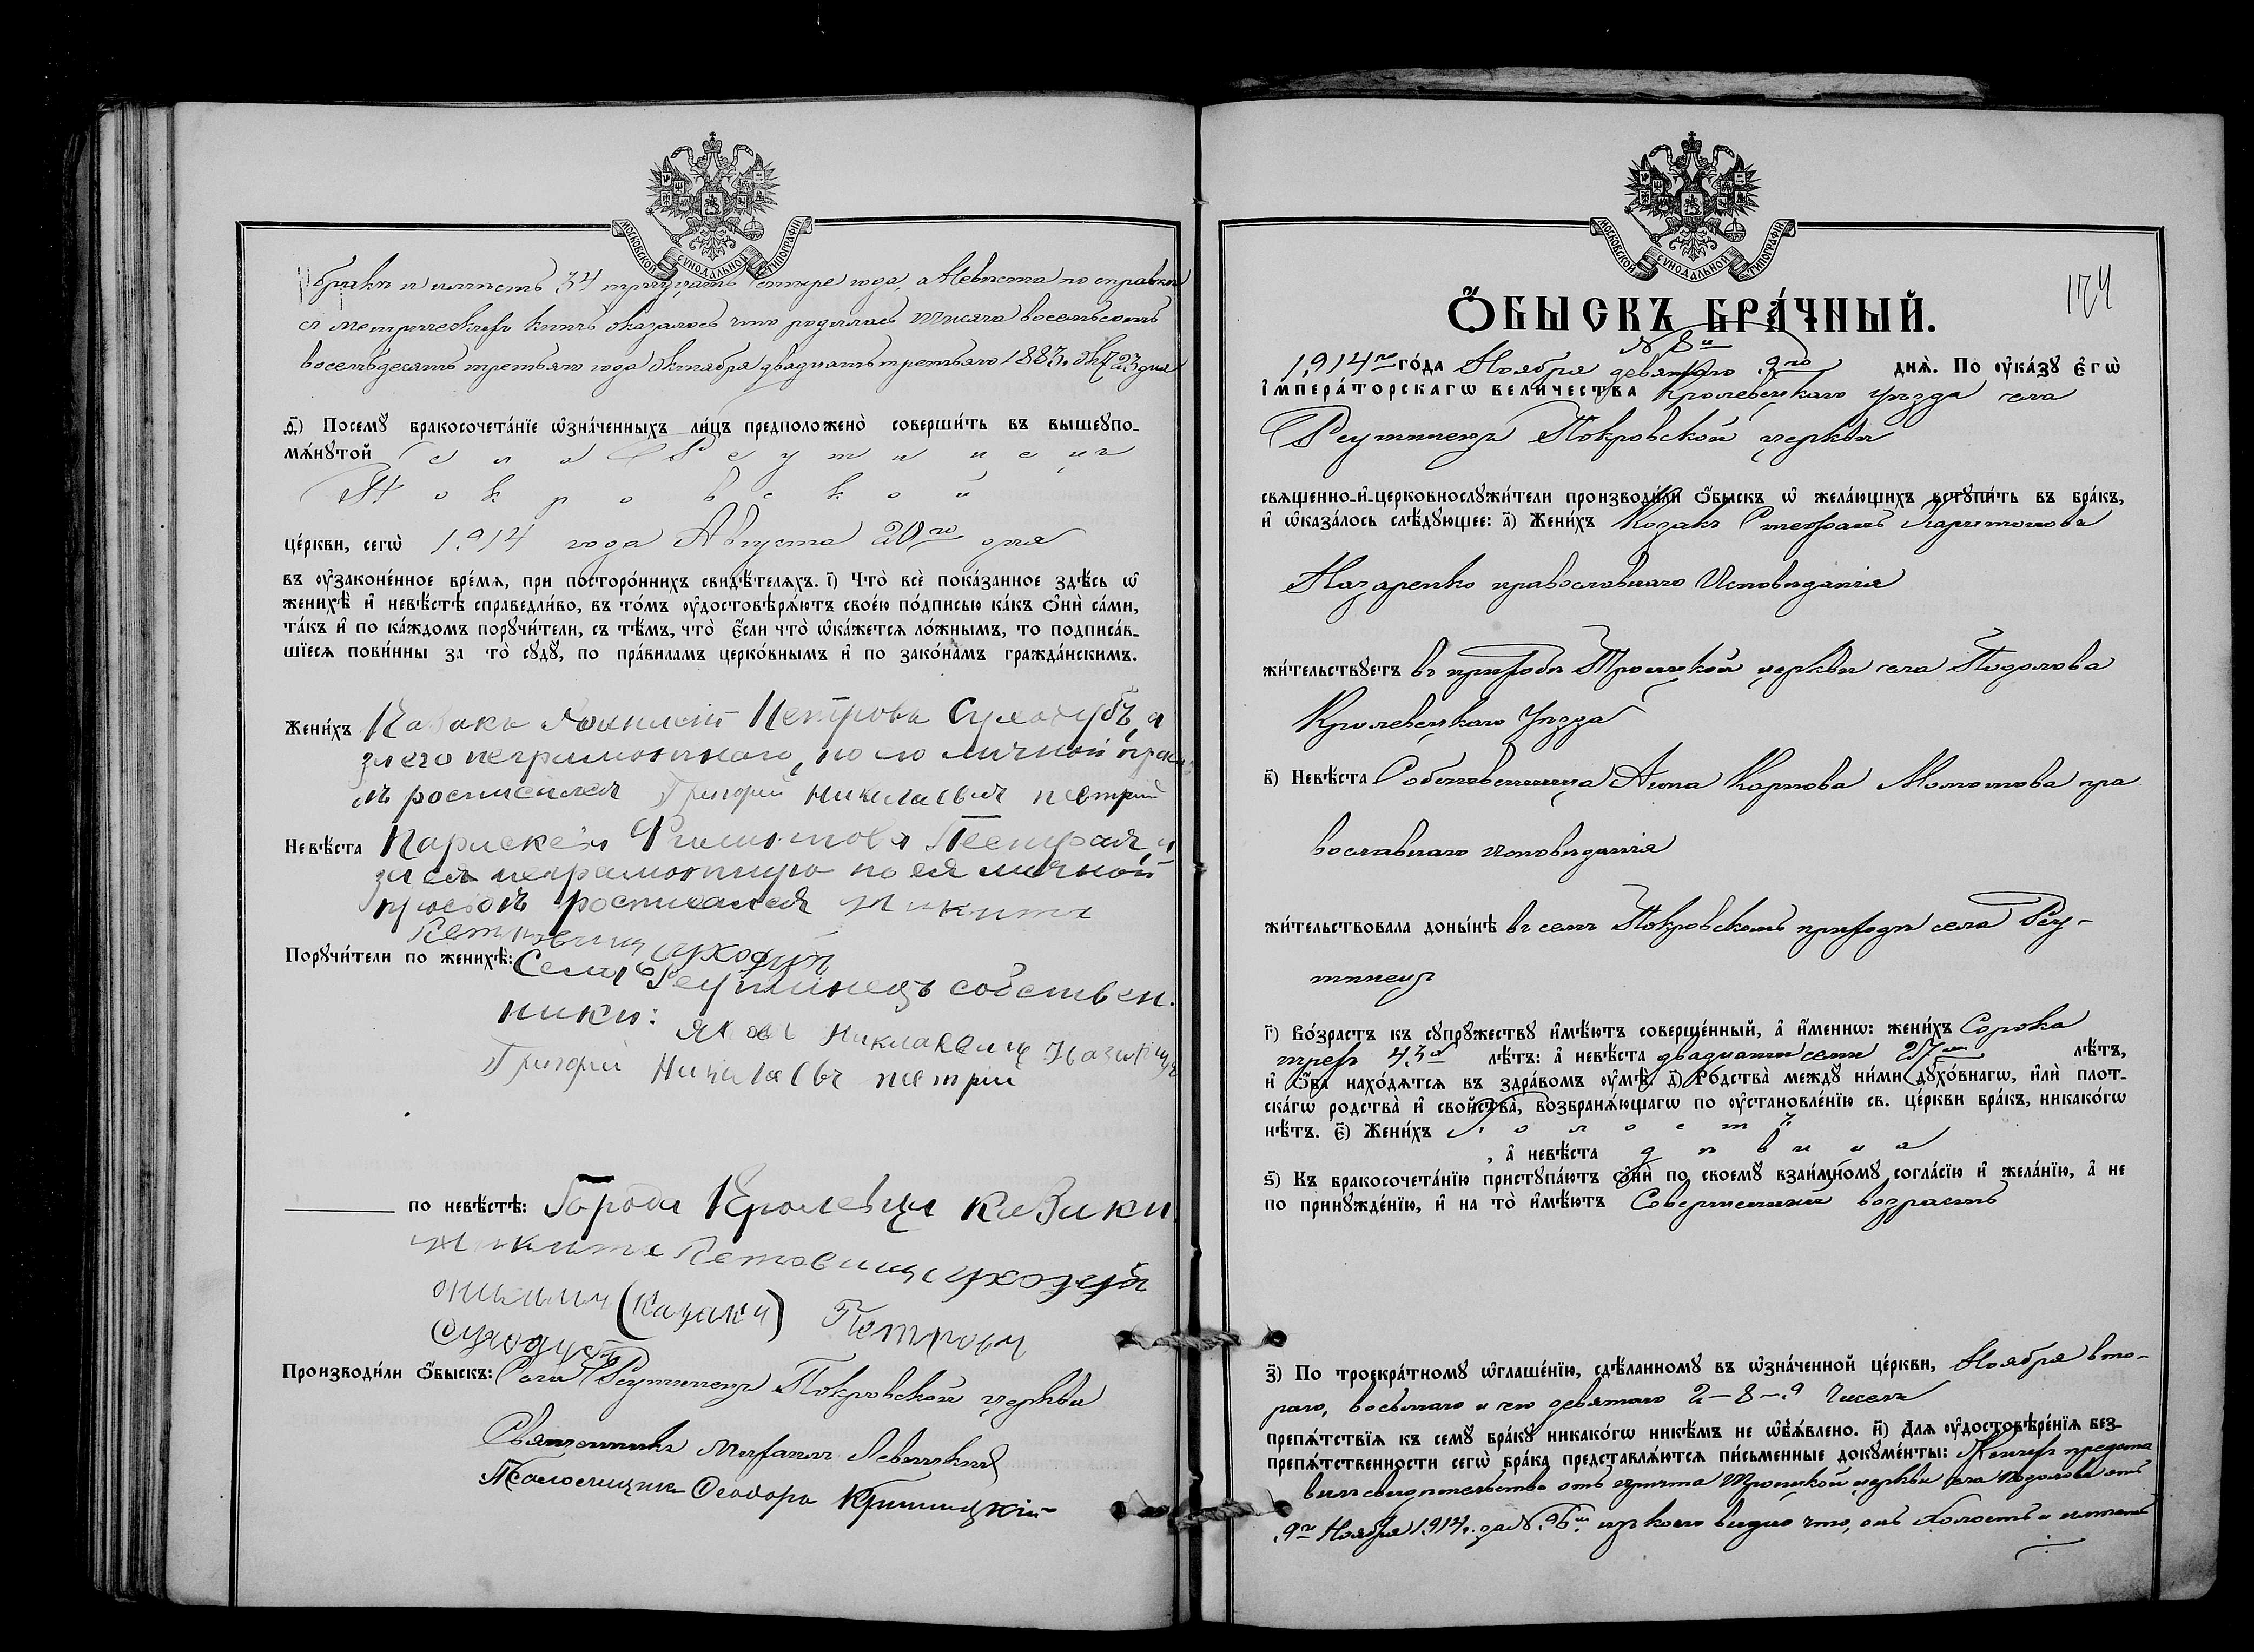 МОСКОВСКОЙ СѴНОДАЛЬНОЙ ТИПОГРАФІИ.
брака и имѣетъ 34 тридцать четыре года, а Невѣста по справкѣ
съ метрическихъ книгъ оказалось что родилась тысяча восемьсотъ
восемьдесятъ третьяго года Октября двадцать третьяго 1883 г. Окт. 23 дня
ѳ҃) Посемꙋ̀ бракосочета́нїе ѡ҆зна́ченныхъ ли́цъ предположено̀ соверши́ть въ вышеꙋпо-
мѧ́нꙋтой села Реутинецъ
Покровской
це́ркви, сегѡ̀ 1914 года Августа 20го дня
въ ѹ҆законе́нное вре́мѧ, при посторо́ннихъ свидѣ́телѧхъ. і҃) Что̀ всѐ пока́занное здѣ́сь ѡ҆
женихѣ̀ и҆ невѣ́стѣ справедли́во, въ то́мъ ѹ҆достовѣрѧ́ютъ свое́ю по́дписью ка́къ ѻ҆нѝ са́ми,
та́къ и҆ по ка́ждомъ порꙋчи́тели, съ тѣ́мъ, что̀ є҆́сли что̀ ѡ҆ка́жетсѧ ло́жнымъ, то подписа́в-
шїесѧ пови́нны за то̀ сꙋдꙋ̀, по пра́виламъ церко́внымъ и҆ по зако́намъ гражда́нскимъ.
Жени́хъ Казакъ Петровъ Суходубъ, а
за его неграмотнаго, по его личной прось
бѣ росписался Григорий Николаевич пестрий
Невѣ́ста Параскева Филипова Пестрая, а
за ея неграмотную по ея личной
просьбѣ росписался Никита
Петрович суходуб
Порꙋчи́тели по женихѣ̀: Села Реутинецъ собствен-
ники: Яков Николаевич
Григорий Николаевъ пестрий
по невѣ́стѣ: Города Кролевца казаки
Никита Петрович суходуб
онисим (казаки) Петрович
Суходуб
Производи́ли ѻ҆́быскъ: Села Реутинецъ Покровской церкви
Священникъ Михаилъ Левицкій
Псаломщикъ Ѳеодоръ Криницкій
МОСКОВСКОЙ СѴНОДАЛЬНОЙ ТИПОГРАФІИ.
124
Ѻ҆́БЫСКЪ БРА́ЧНЫЙ.
№ 8й
1914го го́да Ноября девятого 9го днѧ̀. По ѹ҆ка́зꙋ є҆гѡ̀
і҆мпера́торскагѡ вели́чества Кролевецкаго уѣзда села
Реутинецъ Покровской церкви
свѧщенно-и҆-церковнослꙋжи́тели производи́ли ѻ҆́быскъ ѡ҆ жела́ющихъ встꙋпи́ть въ бра́къ,
и҆ ѡ҆каза́лось слѣ́дꙋющее: а҃) Жени́хъ Козакъ Стефанъ Харитоновъ
Назаренко православнаго Исповѣданія
жи́тельствꙋетъ въ приходѣ Троицкой церкви села Подолова
Кролевецкаго Уѣзда
в҃) Невѣ́ста Собственница Анна Карпова Момотова пра
вославнаго исповѣданія
жи́тельствовала доны́нѣ въ семъ Покровскомъ приходѣ села Реу-
тинецъ
г҃) Во́зрастъ къ сꙋпрꙋ́жествꙋ и҆мѣ́ютъ соверше́нный, а҆ и҆́менно: жени́хъ Сорока
трехъ 43х лѣ́тъ: а҆ невѣ́ста двадцати семи 27ми лѣ́тъ,
и҆ ѻ҆́ба нахо́дѧтсѧ въ здра́вомъ ѹ҆мѣ̀. д҃) Родства̀ междꙋ̀ ни́ми дꙋхо́внагѡ, и҆лѝ плот-
ска́гѡ родства̀ и҆ сво́йства, возбранѧ́ющагѡ по ѹ҆становле́нїю св. це́ркви бра́къ, никако́гѡ
нѣ́тъ. є҃) Жени́хъ холостъ
, а҆ невѣ́ста дѣвица
ѕ҃) Къ бракосочета́нїю пристꙋпа́ютъ ѻ҆нѝ по своемꙋ̀ взаи́мномꙋ согла́сїю и҆ жела́нїю, а҆ не
по принꙋжде́нїю, и҆ на то̀ и҆мѣ́ютъ Совершенный возрастъ
з҃) По троекра́тномꙋ ѡ҆глаше́нїю, сдѣ́ланномꙋ въ ѡ҆зна́ченной це́ркви, Ноября вто-
раго, восьмаго и сего девятаго 2-8-9 Чиселъ
препѧ́тствїѧ къ семꙋ̀ бра́кꙋ никако́гѡ никѣ́мъ не ѡ҆б̾ѧ́влено. и҃) Для ѹ҆достовѣре́нїѧ без-
препѧ́тственности сегѡ̀ бра́ка представлѧ́ютсѧ пи́сьменные докꙋме́нты: Женихъ предста
вилъ свидѣтельство отъ причта Троицкой церкви села Подолова отъ
9го Ноября 1914 г. за № 96м. изъ коего видно что, онъ Холостъ и имѣетъ